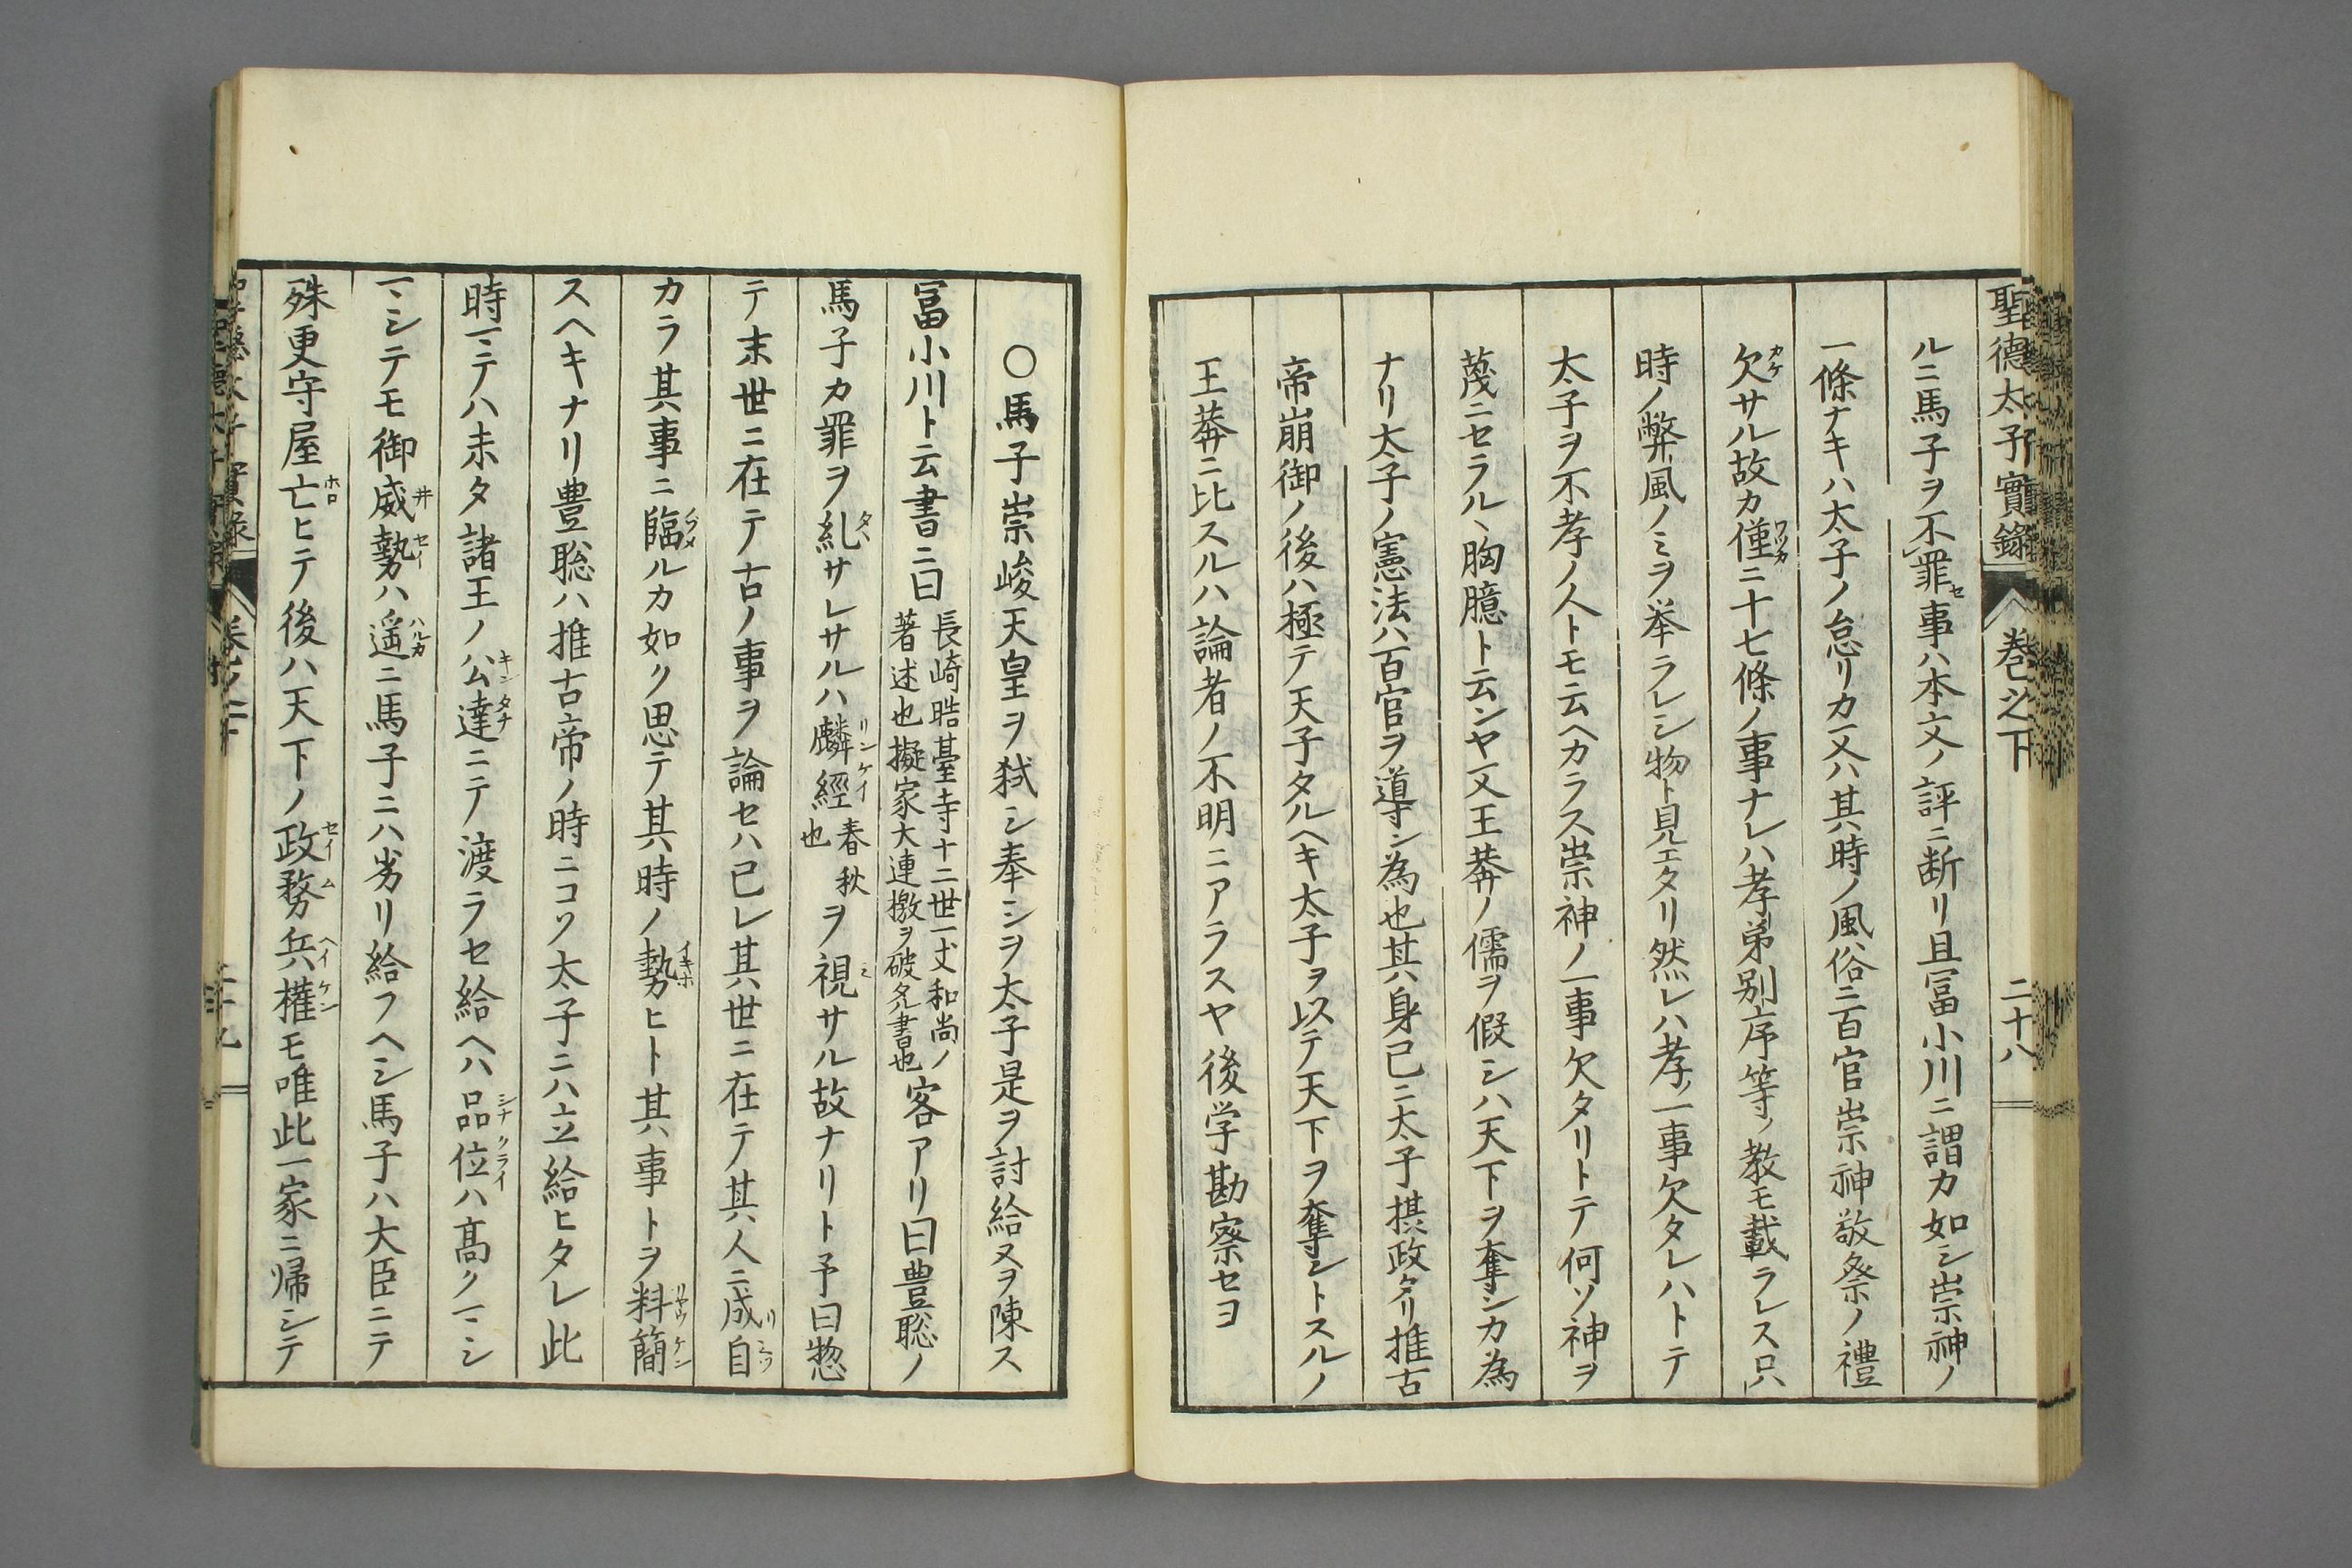 聖德太子實錄 巻之下 二十八
ルニ馬子ヲ不罪セ事ハ本文ノ評ニ断リ且冨小川ニ謂カ如シ崇神ノ
一條ナキハ太子ノ怠リカ又ハ其時ノ風俗ニ百官崇神敬祭ノ禮
欠サル故カ僅ニ十七條ノ事ナレハ孝弟別序等ノ教モ載ラレス只
時ノ弊風ノミヲ举ラレシ物ト見エタリ然レハ孝ノ一事欠タレハトテ
太子ヲ不孝ノ人トモ云ヘカラス崇神ノ一事欠タリトテ何ソ神ヲ
蔑ニセラルヽ胸臆ト云ンヤ又王莽ノ儒ヲ假シハ天下ヲ奪シカ為
ナリ太子ノ憲法ハ百官ヲ導ン為也其身已ニ太子摂政タリ推古
帝崩御ノ後ハ極テ天子タルヘキ太子ヲ以テ天下ヲ奪ントスルノ
王莽ニ比スルハ論者ノ不明ニアラスヤ後学勘察セヨ
〇馬子崇峻天皇ヲ弑シ奉シヲ太子是ヲ討給又ヲ陳ス
冨小川ト云書ニ曰 長崎晧臺寺十二世一丈和尚ノ著述也擬家大連檄ヲ破タル書也 客アリ曰豊聡ノ
馬子カ罪ヲ糺サレサルハ麟經 春秋也 ヲ視サル故ナリト予曰惣
テ末世ニ在テ古ノ事ヲ論セハ己レ其世ニ在テ其人ニ成自
カラ其事ニ臨ルカ如ク思テ其時ノ勢ヒト其事トヲ料簡
スヘキナリ豊聡ハ推古帝ノ時ニコソ太子ニハ立給ヒタレ此
時マテハ未タ諸王ノ公達ニテ渡ラセ給ヘハ品位ハ髙クマシ
マシテモ御威勢ハ遥ニ馬子ニハ劣リ給フヘシ馬子ハ大臣ニテ
殊更守屋亡ヒテ後ハ天下ノ政務兵權モ唯此一家ニ帰シテ